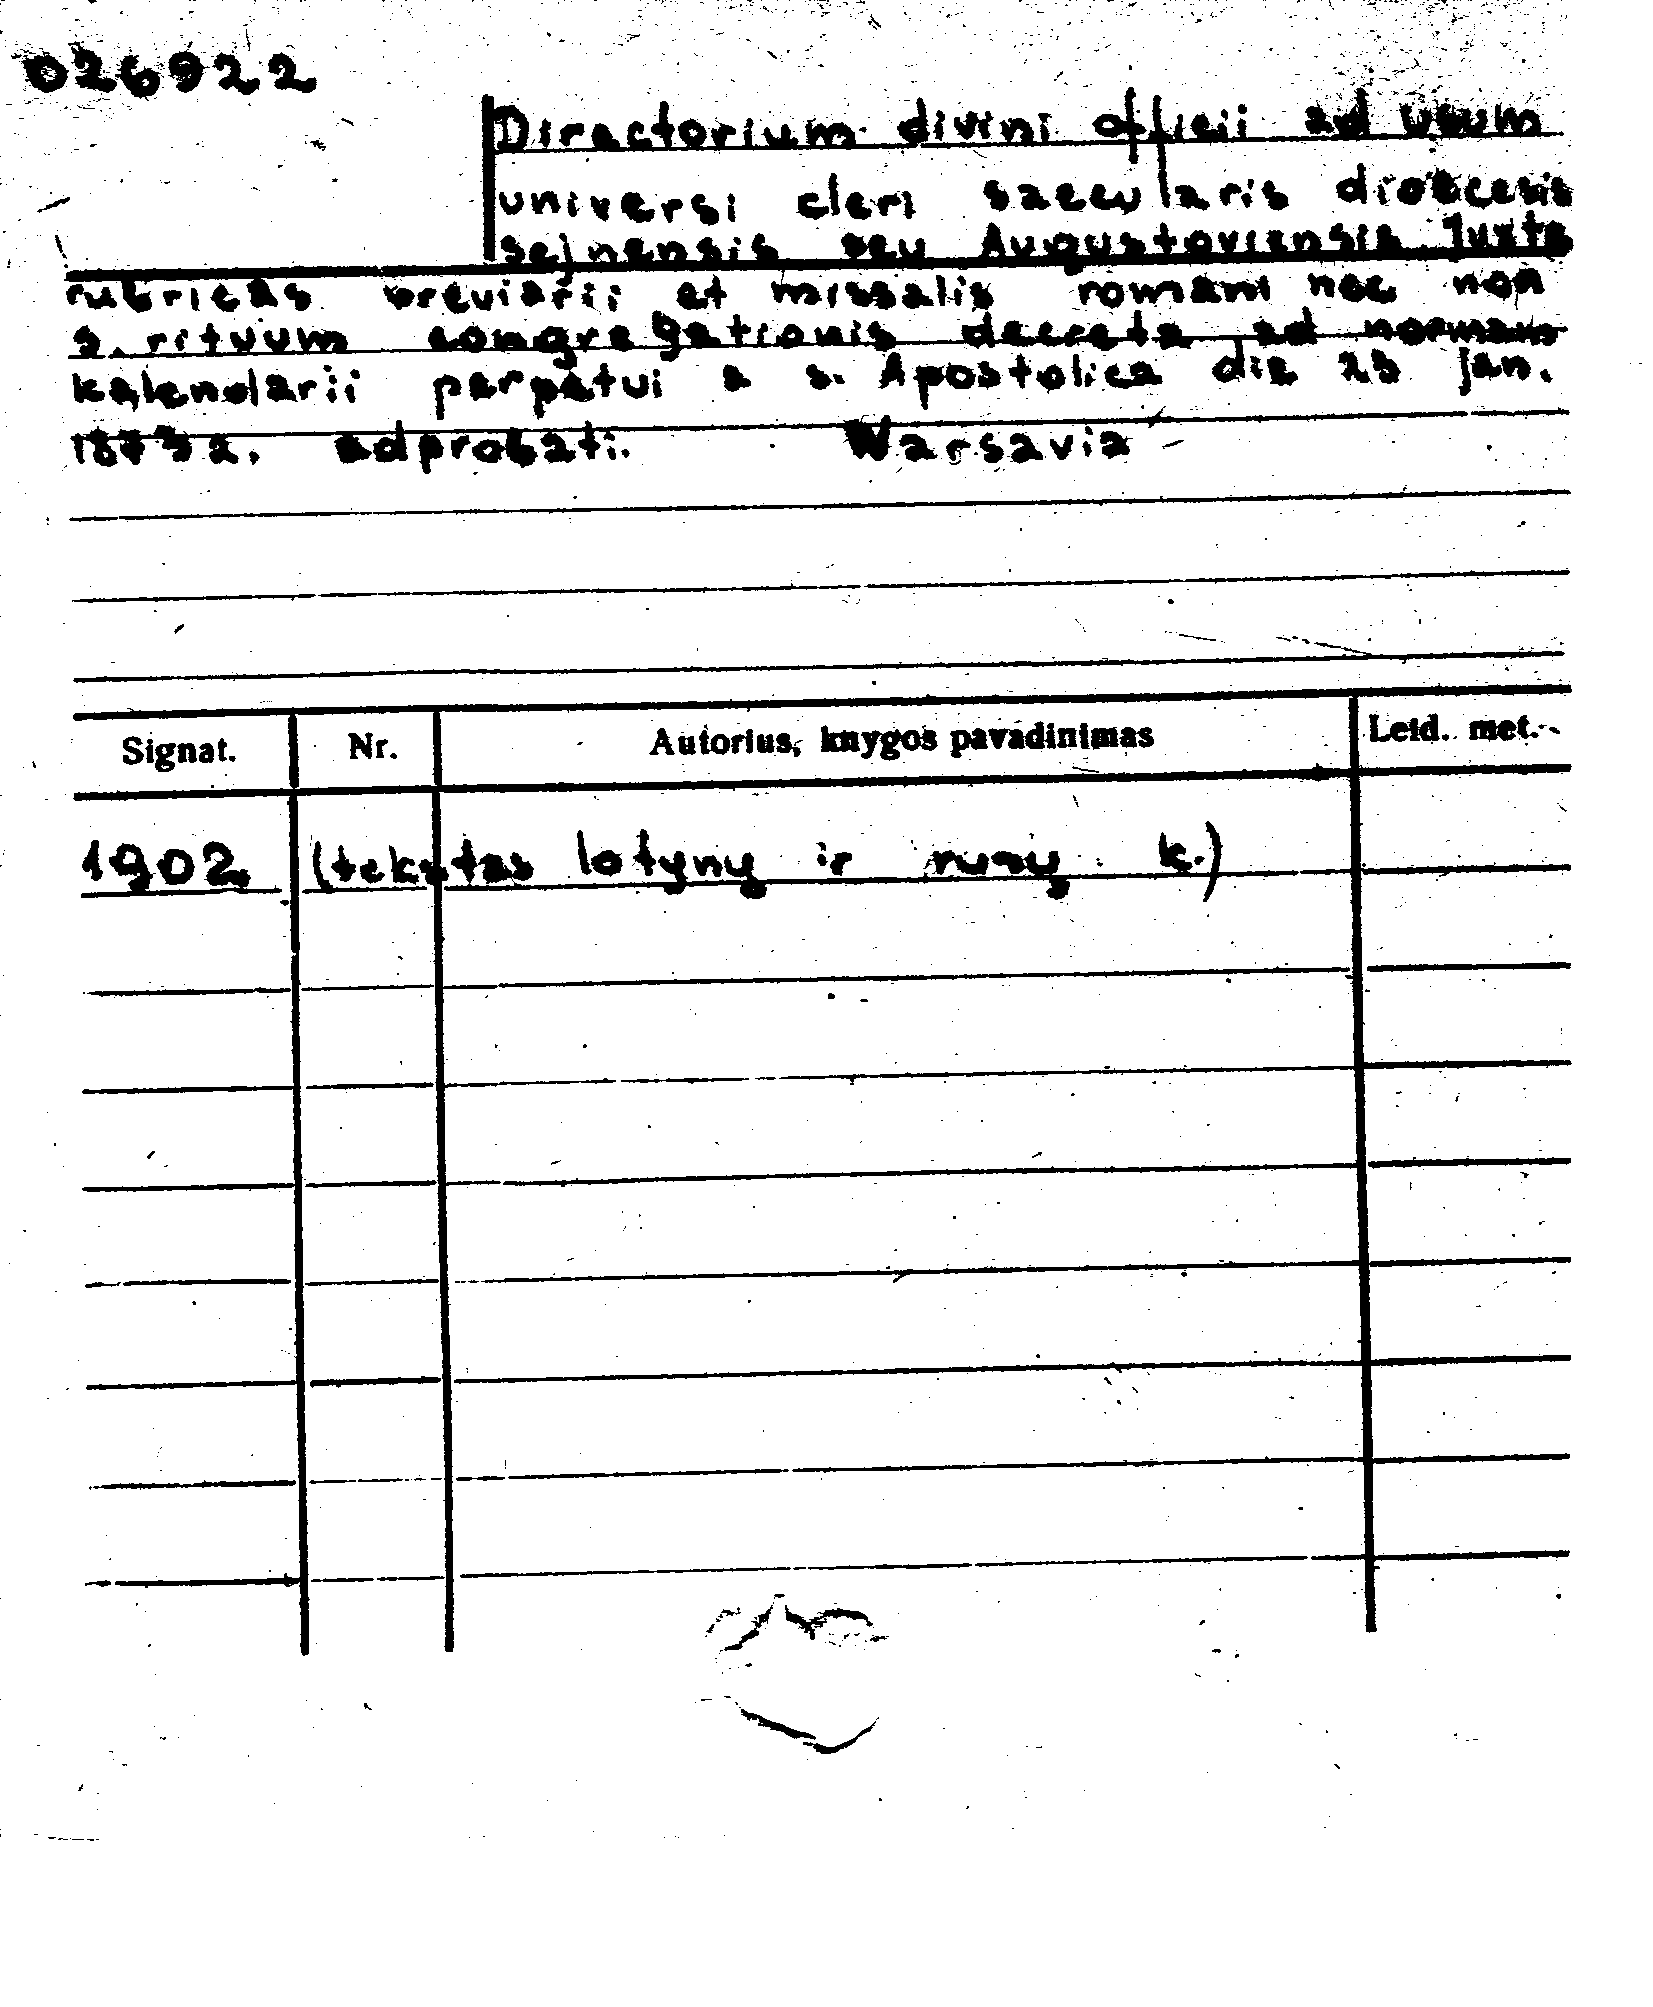 026922
Directorium divini officii ad usum
universi cleri saecularis dioecesis
sejnensis seu Augustoviensis Juxta
rubricas breviarii et missalis romani nec non
s. rituum congregationis decreta ad normam
kalendarii perpetui a s. Apostolica die 23 jan.
1873 a. adprobati. Warsavia
Signat. Nr. Autorius, knygos pavadinimas Leid. met.
1902 (tekstas lotynų ir rusų k.)